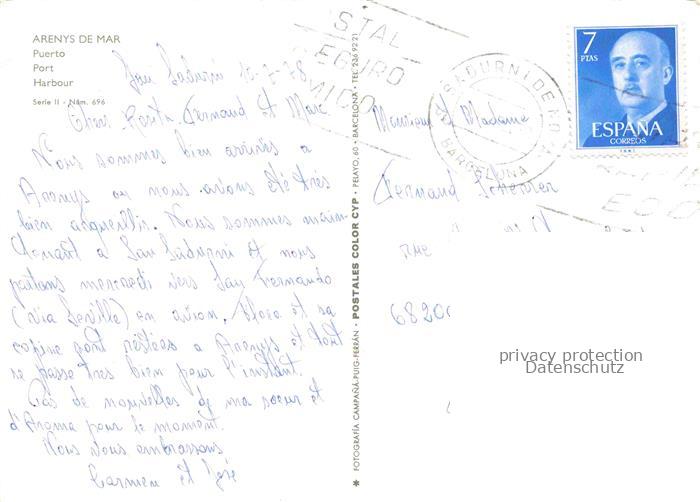 ARENYS DE MAR
Puerto
Port
Harbour
Serie II - Núm. 696
San Sadurni 12-7-78
Chers Fernand et Marc
Nous sommes bien arrivés a
Arenys ou nous avions été très
bien acqueillis. Nous sommes main-
tenant a San Sadurni et nous
partons mercredi vers San Fernando
(via Seville) en avion. et sa
copine sont restées a Arenys et tout
se passe très bien pour l'instant.
Pas de nouvelles de ma soeur et
d' pour le moment.
Nous vous embrassons
Carmen et José
FOTOGRAFÍA CAMPAÑÁ-PUIG-FERRÁN · POSTALES COLOR CYP · PELAYO, 60 · BARCELONA · TEL. 236 92 21
STAL
SEGURO
MICO
SADURNI DE NOYA
BARCELONA
7
PTAS
ESPAÑA
CORREOS
Monsieur et Madame
Fernand
RUE
6820
privacy protection
Datenschutz